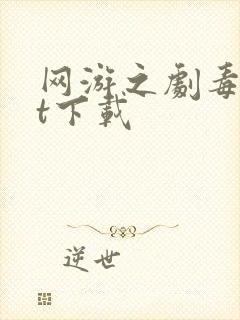 网游之劇毒
t下载
逆世